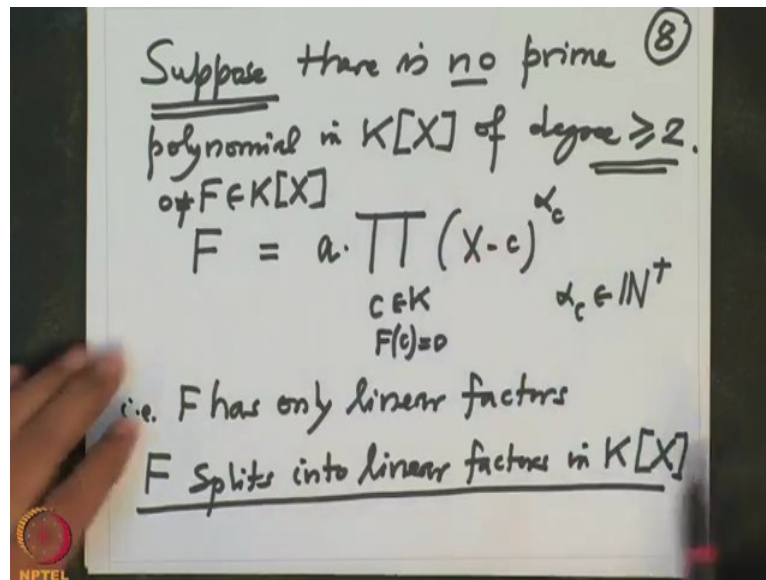 Suppose there is no prime ⑧
polynomial in K[X] of degree ≥ 2.
0 ≠ F ∈ K[X]
F = a · ∏ (X - c)^α_c
c ∈ K α_c ∈ ℕ⁺
F(c) = 0
i.e. F has only linear factors
F splits into linear factors in K[X]
NPTEL